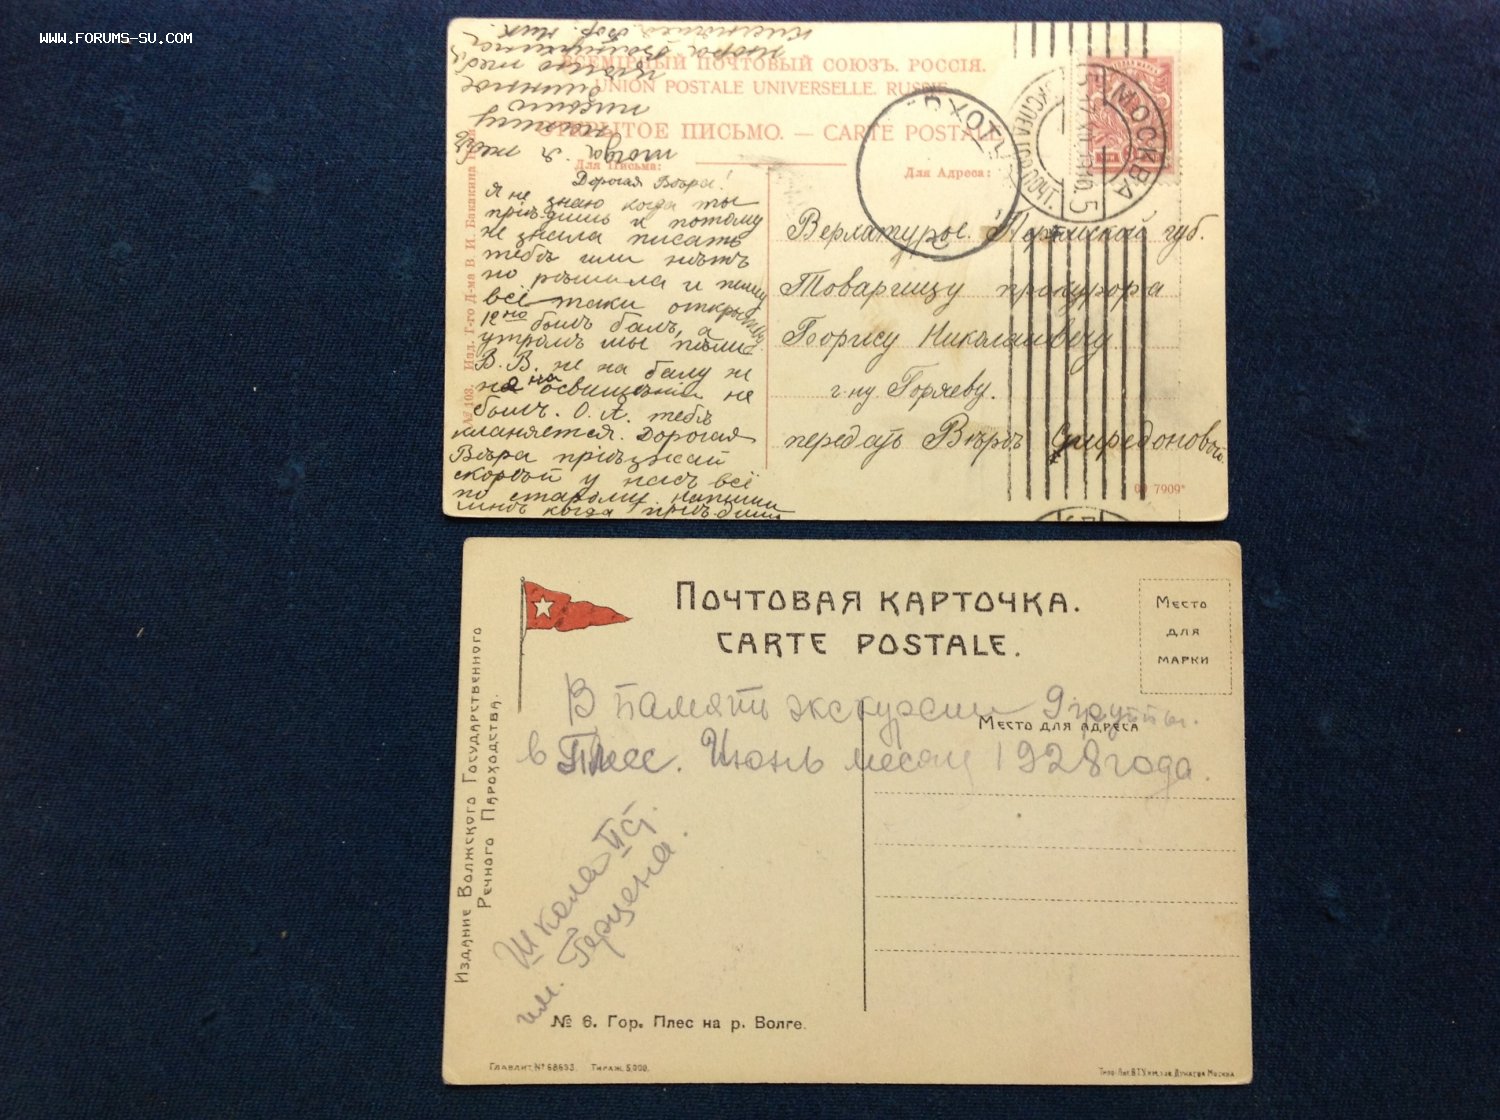 WWW.FORUMS-SU.COM
ВСЕМІРНЫЙ ПОЧТОВЫЙ СОЮЗЪ. РОССІЯ.
UNION POSTALE UNIVERSELLE. RUSSIE.
ОТКРЫТОЕ ПИСЬМО. — CARTE POSTALE
Для Письма:
Для Адреса:
МОСКВА
Дорогая Вѣра!
Я не знаю когда ты
пріѣдишь и потому
не знала писать
тебѣ или нѣтъ
но рѣшила и пишу
всё таки открытку
12го былъ балъ, а
утромъ мы пѣли
В. В. не на балу не
на освищеніи не
былъ. О. А. тебѣ
кланяется. Дорогая
Вѣра пріѣзжай
скорѣй у насъ всё
по старому напиши
мнѣ когда пріѣдишь
тогда я тебѣ
напишу
письмо
длинное
цѣлую тебя
Верхатурье. Пермской губ.
Товарищу прокурора
Георгису Николаевичу
г-ну Горяеву.
передать Вѣрѣ Спиредоновой.
7909*
№ 103. Изд. Т-го Д-ма В. И. Бакакина
ПОЧТОВАЯ КАРТОЧКА.
CARTE POSTALE.
МЕСТО
ДЛЯ
МАРКИ
МЕСТО ДЛЯ АДРЕСА
В память экскурсии 9 группы.
в Плес. Июнь месяц 1928 года.
Школа II ст.
им. Герцена.
ИЗДАНИЕ ВОЛЖСКОГО ГОСУДАРСТВЕННОГО
РЕЧНОГО ПАРОХОДСТВА.
№ 6. Гор. Плес на р. Волге.
ГЛАВЛИТ. № 68693. ТИРАЖ 5,000.